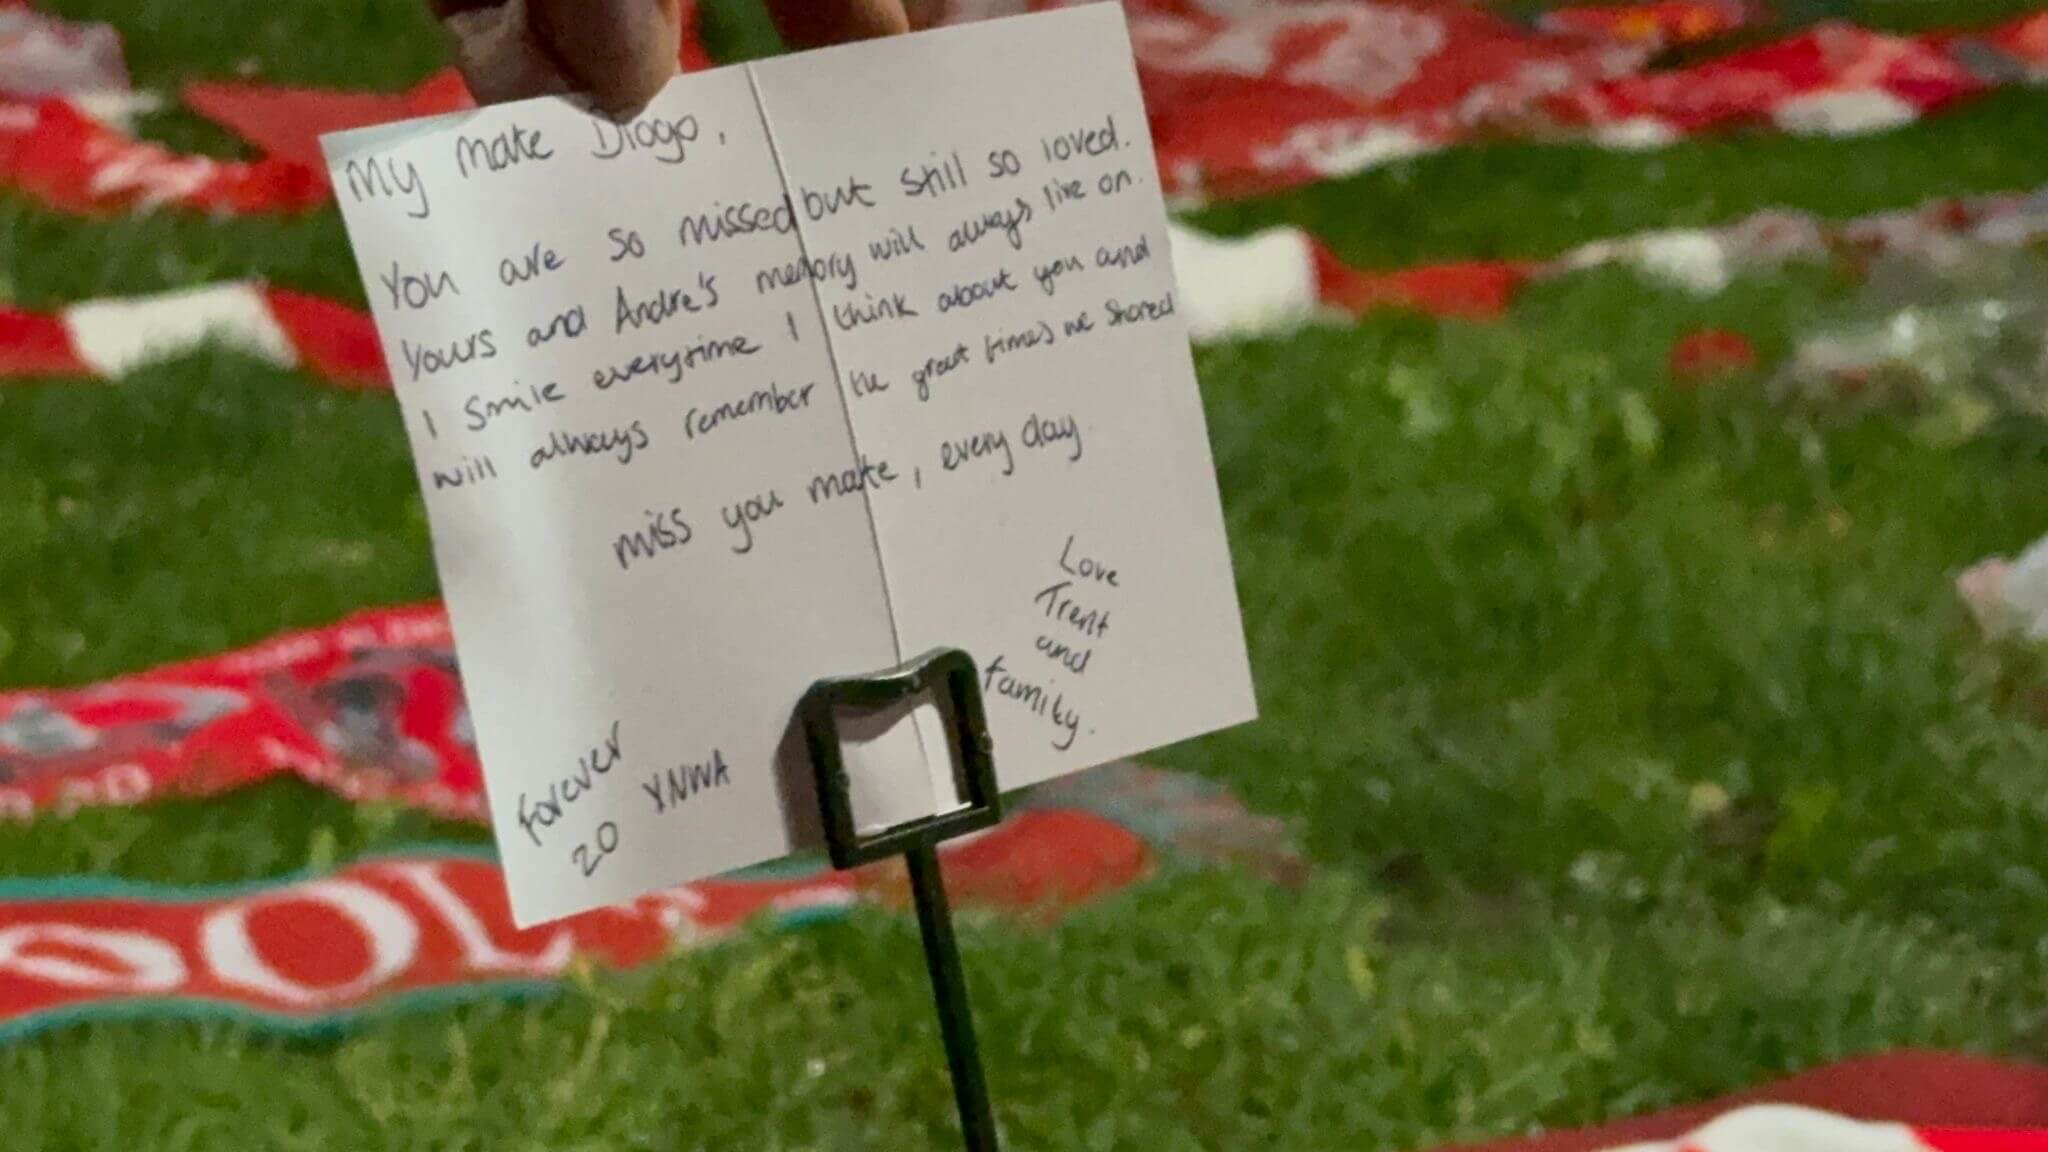 My mate Diogo,
You are so missed but still so loved.
Yours and Andre's memory will always live on.
I smile everytime I think about you and
will always remember the great times we shared
miss you mate, every day.
Love
Trent
and
family.
Forever
20 YNWA
OOL